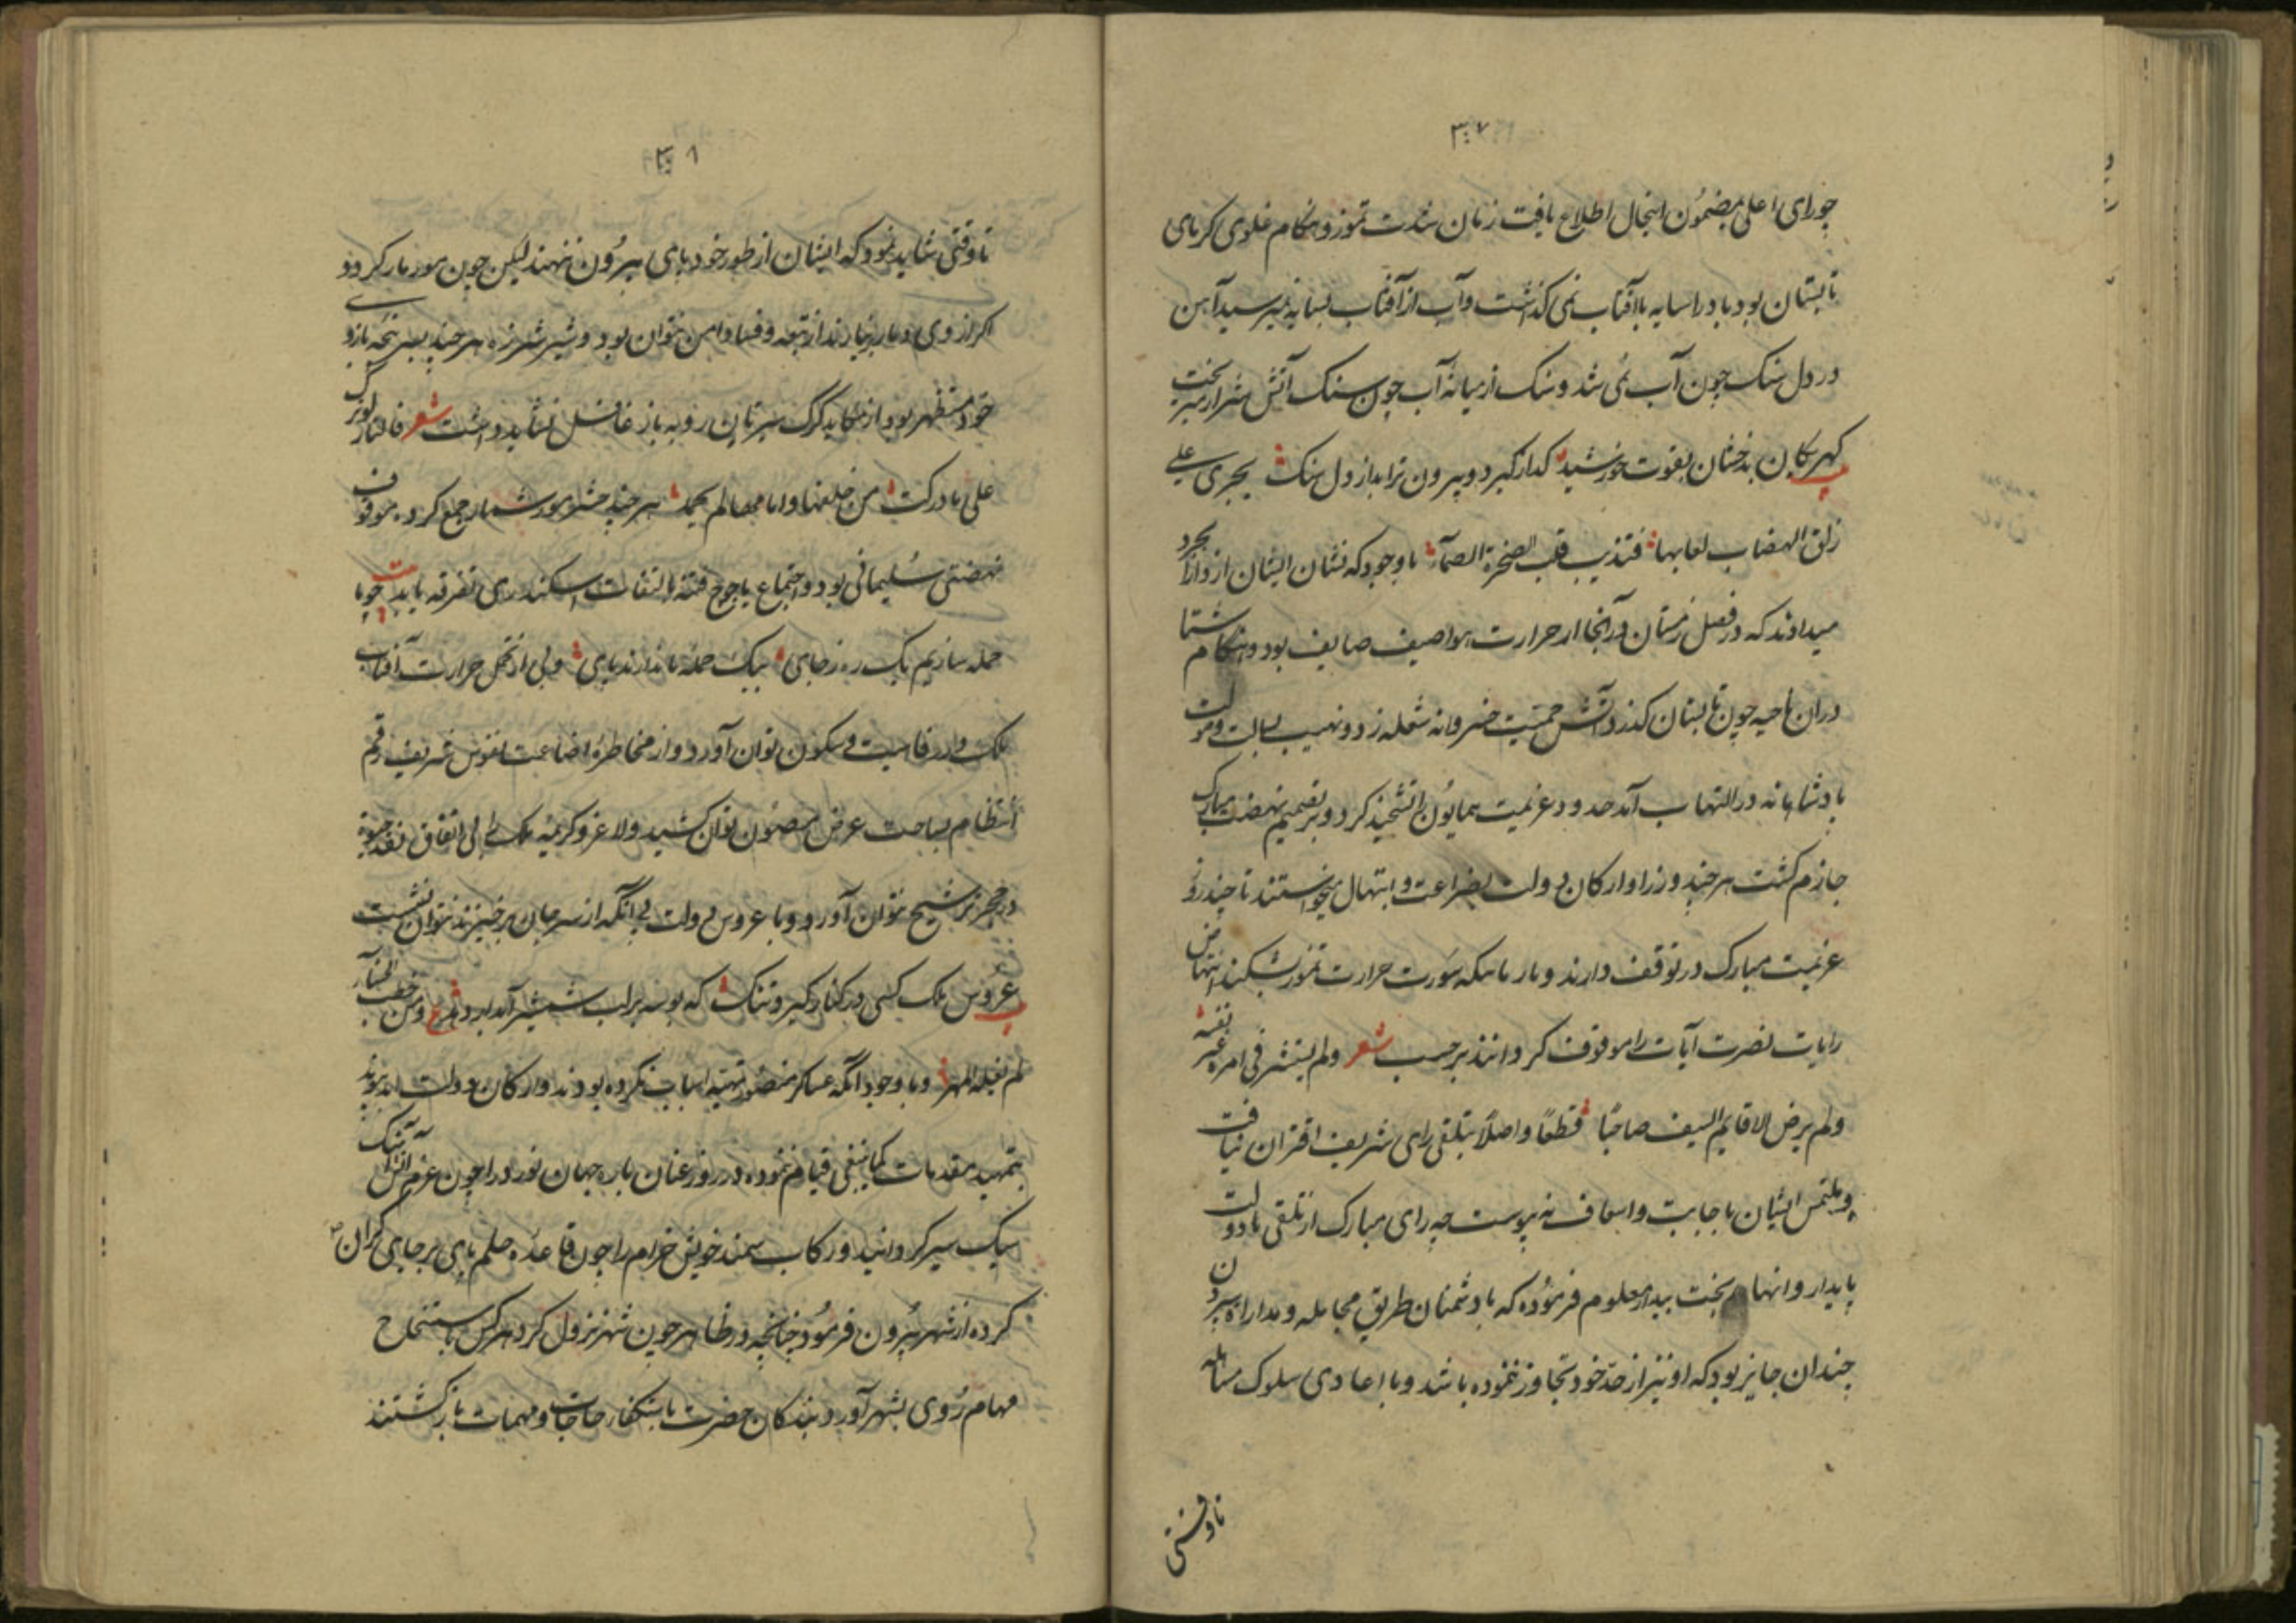 ۳۰۷
چو رای اعلی بمضمون اینحال اطلاع یافت زمان شدت تموز و هنکام غلوی کرمای
تابستان بود باد را سایه با آفتاب نمی کذاشت و آب از آفتاب بسایه نمیرسید آهن
در دل سنک چون آب می شد و سنک از میانه آب چون سنک آتش شرار میریخت
کهر بکان بدخشان بقوت خورشید کداز کیرد و بیرون ترابد از دل سنک یجری علی
زلق الهضاب لعابها فتذیب قلب الصخرة الصمآء با وجود که نشان ایشان از
میدادند که در فصل زمستان در آنجا از حرارت هوا صیف صایف بود و هنکام شتا
در ان ناحیه چون تابستان کذرد آتش حمیت خسروانه شعله زد و نهیب بسالت و
بادشاهانه در التهاب آمد حدود عزیمت همایون را تشحیذ کرد و بر تصمیم نهضت مبارک
جازم کشت هر چند وزرا و ارکان دولت بضراعت و ابتهال میخواستند تا چند روز
عزیمت مبارک در توقف دارند و تا سورت حرارت تموز بشکند انتهاض
رایات نصرت آیات را موقوف کردانند بر حسب شعر ولم یستشر فی امره غیر نفسه
ولم یرض الا قایم السیف صاحبا قطعا و اصلا بتلقی رای شریف اقتران نیافت
و ملتمس ایشان باجابت و اسعاف نه پیوست چه رای مبارک از تلقی دولت
پایدار و انهاء بخت بیدار معلوم فرموده که با دشمنان طریق مجامله و مدارا سپردن
چندان جایز بود که او نیز از حد خود تجاوز ننموده باشد و با اعادی سلوک
تا وقتی
۳۰۸
تا وقتی شاید نمود که ایشان از طور خود پای بیرون ننهند لیکن چون مور مار کردد
اکر از وی دمار بر نیارند از تبعه و فساد امن نتوان بود و شیر شرزه هر چند پنجه بازوی
خود مستظهر بود از مکاید کرک روبه باز غافل نشاید داشت شعر
علی من خلفها و اما هر چند مور شمار جمع کرده موقوف
نهضتی سلیمانی بود و اجتماع یاجوج فتنه بالتفات اسکندری تفرقه یابد بیت چو با
حمله سازیم یک ره ز جای بیک حمله ما ندارند پای و بی از تحمل حرارت آفتاب
ملک در رفاهیت و سکون توان آورد و از مخاطره اضاعت نفوس شریف رقم
انتظام بساحت عرض مصون توان کشید و لا غرو کریمه ملک را بی انفاق نقد
در حجر ترشیح نتوان آورد و با عروس دولت بی آنکه از سر جان برخیزند نتوان نشست
عروس ملک کسی در کنار کیرد تنک که بوسه بر لب شمشیر آبدار دهد ع و من خطب الحسناء
لم یغله المهر و با وجود آنکه عساکر منصور تهیه اسباب نکرده بودند و ارکان دولت
بتمهید مقدمات کما ینبغی قیام ننموده در روز عنان باره جهان نورد را چون عزم آهنک
سبک سیر کردانید و رکاب سمند خوش خرام را چون قاعده حلم پای بر جای کران
کرده از شهر بیرون فرمود چنانچه در ظاهر چون شهر نزول کرد هر کس باستنجاح
مهام روی بشهر آورد بندکان حضرت باستکفاء حاجات و مهمات بازکشتند